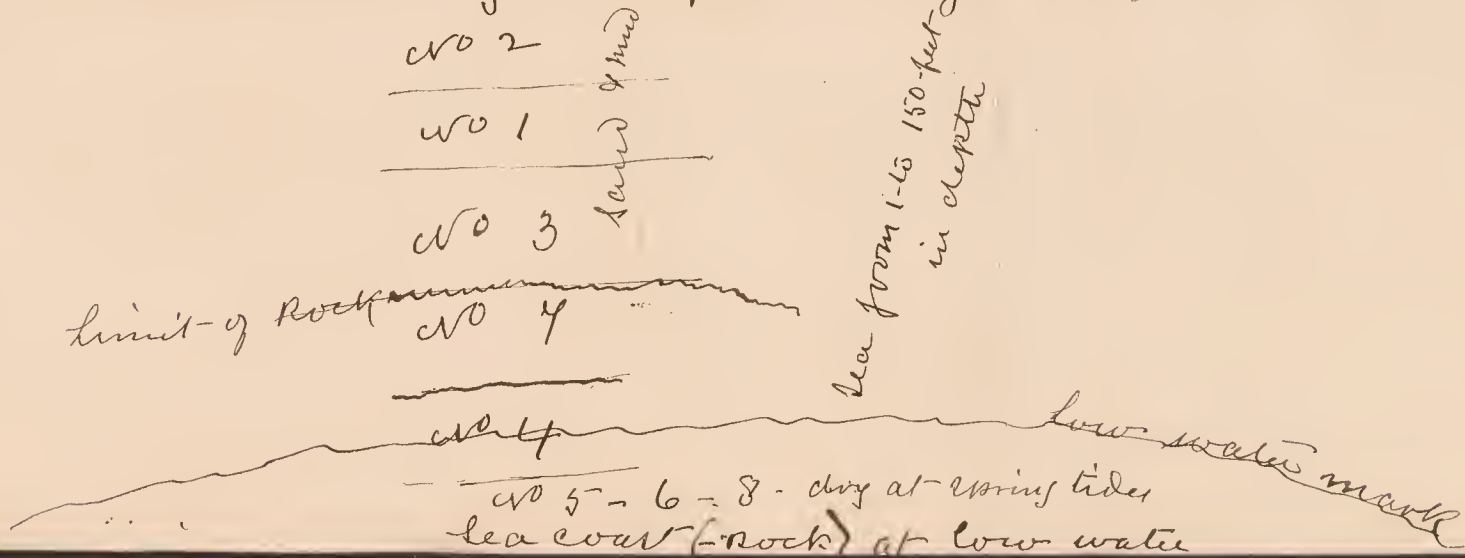 No 2
No 1
No 3
Sand & mud
Sea from 1-to 150-feet
in depth
limit-of Rock
No 7
No 4
low water mark
No 5 - 6 - 8 - dry at spring tides
Sea coast (-Rock) at low water